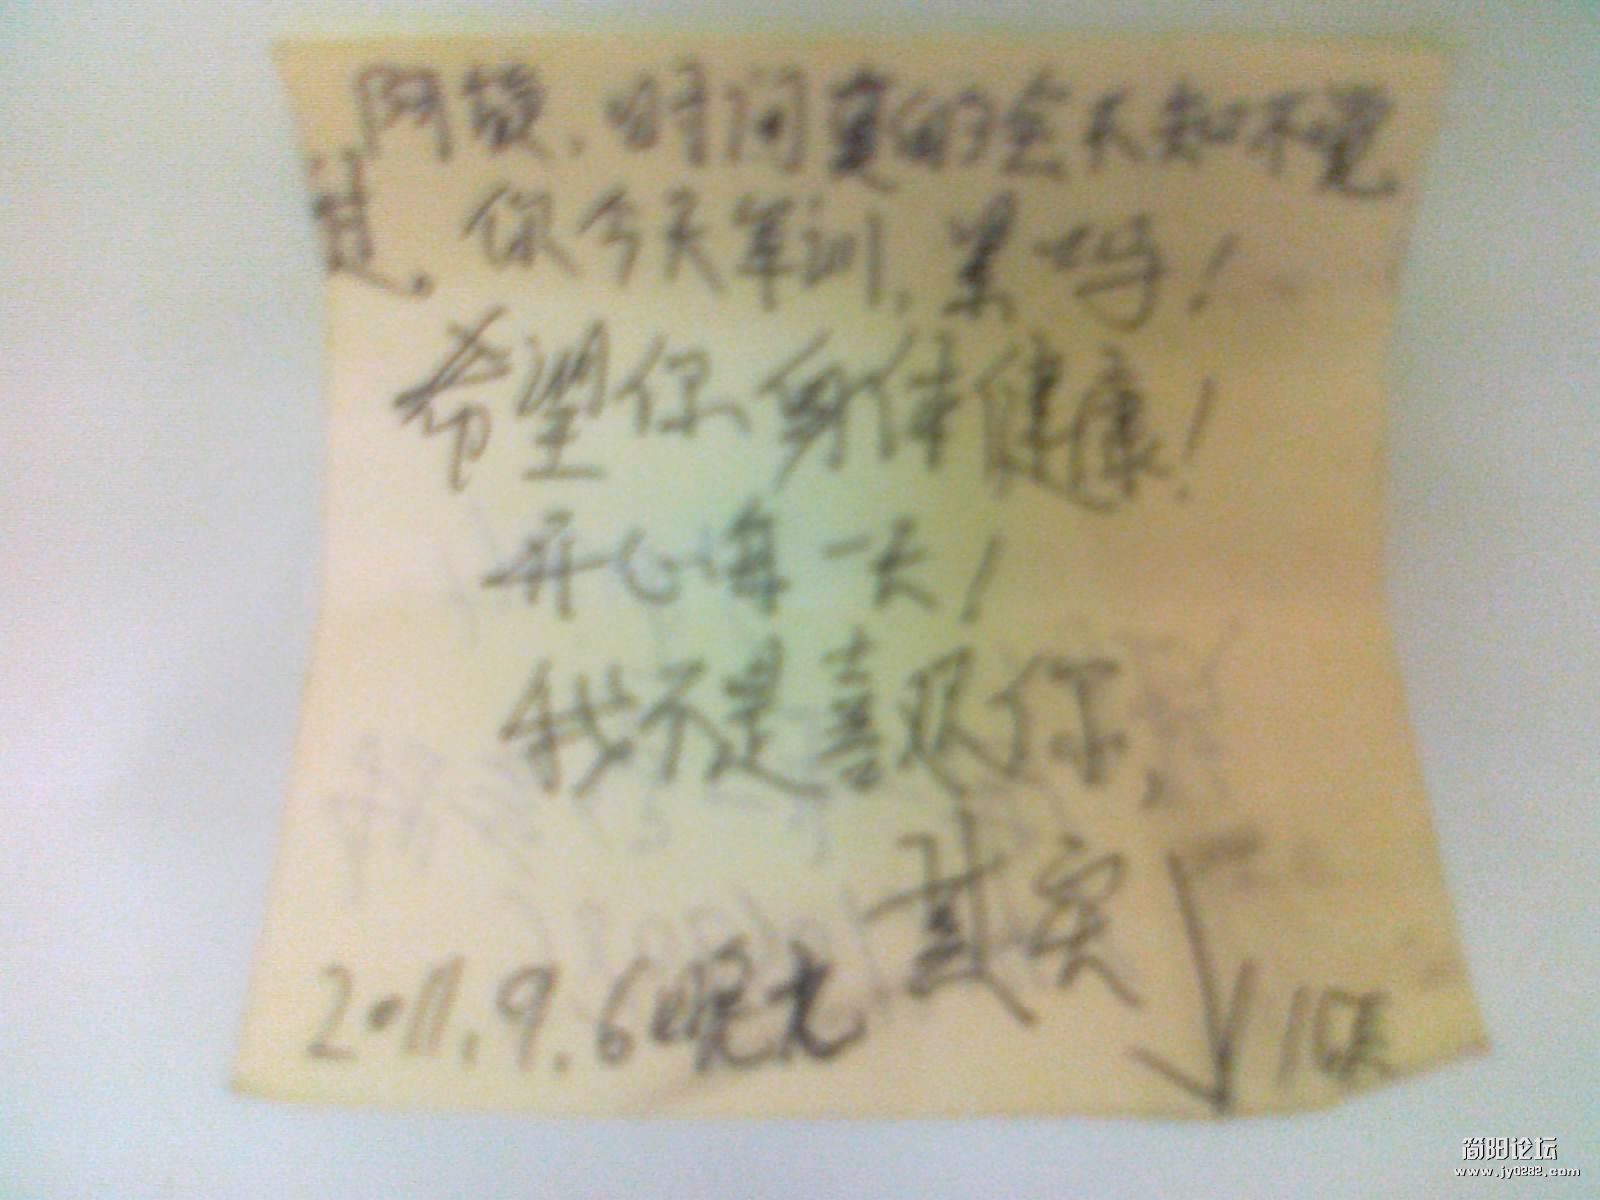 时间真的会不知不觉
过。你今天军训,累吗!
希望你身体健康!
开心每一天!
我不是喜欢你,
其实
2011.9.6晚
简阳论坛
www.jy0282.com